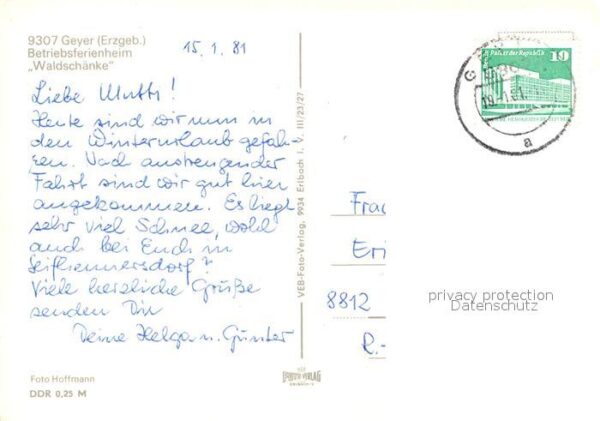 9307 Geyer (Erzgeb.)
Betriebsferienheim
„Waldschänke"
15. 1. 81
Liebe Mutti!
Heute sind wir nun in
den Winterurlaub gefah-
ren. Nach anstrengender
Fahrt sind wir gut hier
angekommen. Es liegt
sehr viel Schnee, wohl
auch bei Euch in
Seifhennersdorf?
Viele herzliche Grüße
senden Dir
Deine Helga u. Günter
Foto Hoffmann
DDR 0,25 M
VEB-Foto-Verlag, 9934 Erlbach I. V. III/23/27
FOTO-VERLAG
ERLBACH
Palast der Republik
10
a
Frau
Eri
8812
R.-
privacy protection
Datenschutz